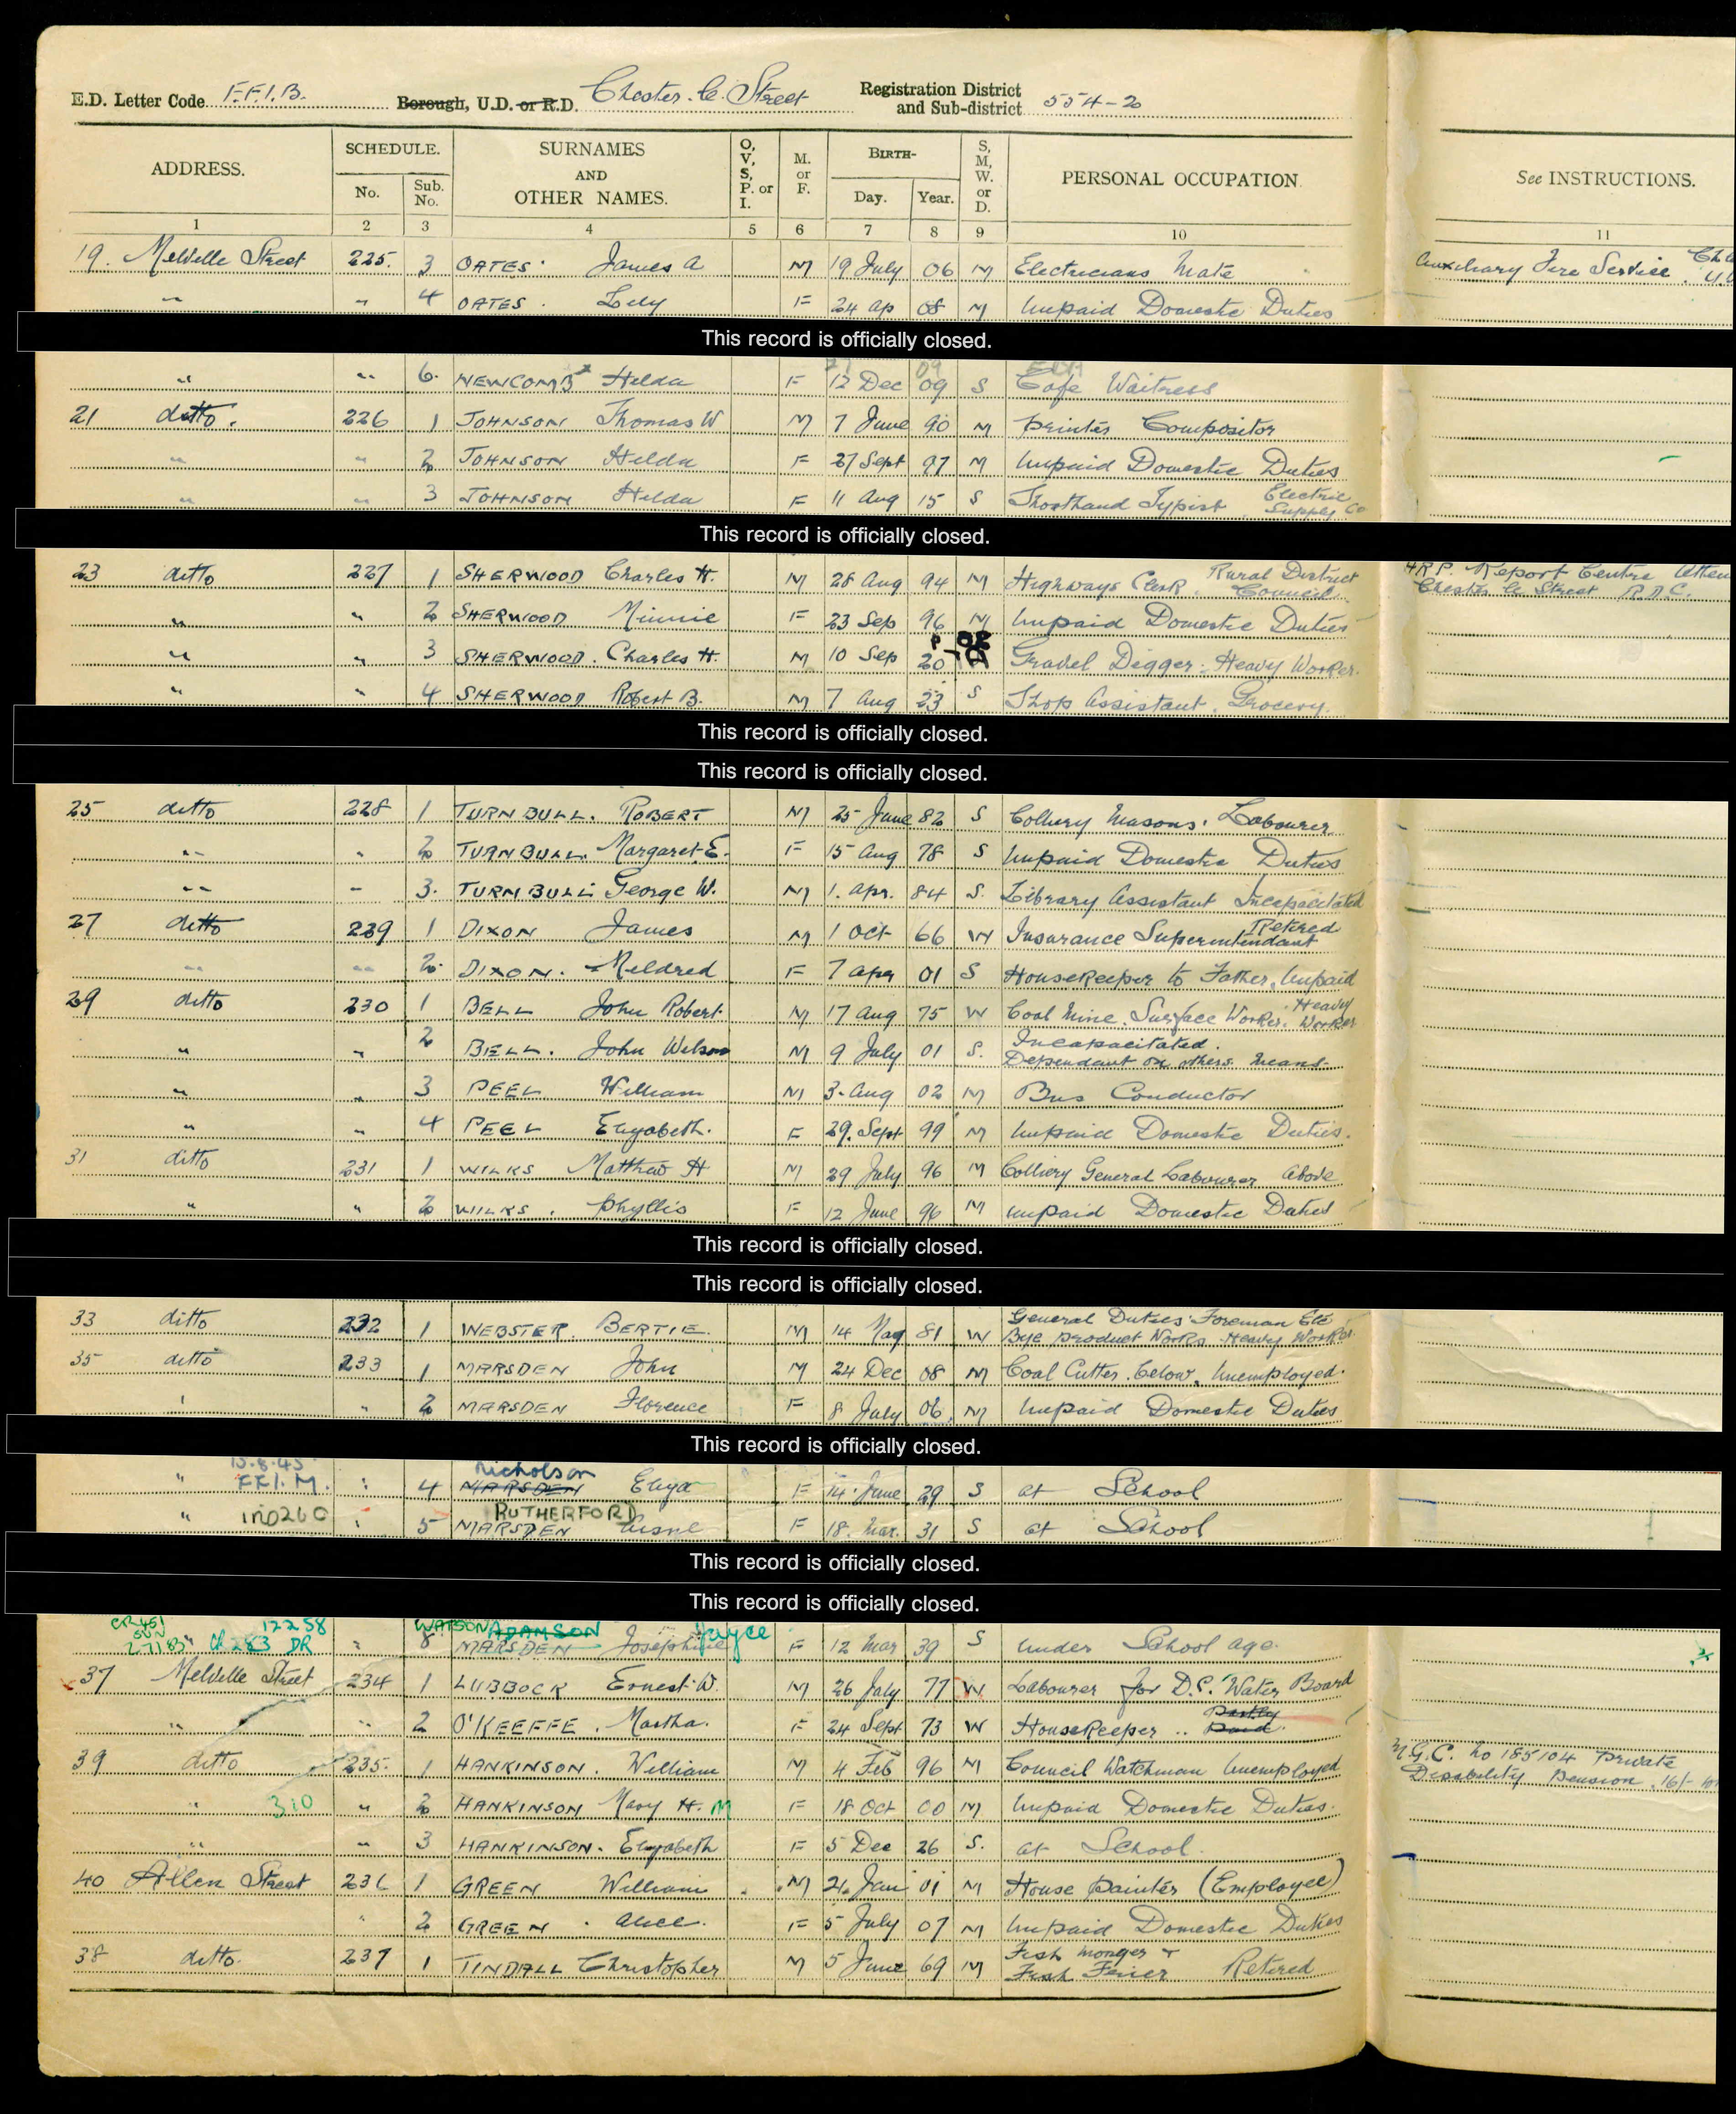 E.D. Letter Code F.F.I.B. Borough, U.D. or R.D. Chester. le. Street Registration District and Sub-district 554-2
ADDRESS. SCHEDULE. No. Sub. No. SURNAMES AND OTHER NAMES. O, V, S, P. or I. M. or F. BIRTH- Day. Year. S, M, W. or D. PERSONAL OCCUPATION. See INSTRUCTIONS.
1 2 3 4 5 6 7 8 9 10 11
19. Melville Street 225. 3 OATES James A M 19 July 06 M Electricians Mate Auxiliary Fire Service.
" " 4 OATES. Lily F 24 ap 08 M Unpaid Domestic Duties
This record is officially closed.
" " 6. NEWCOMB Hilda F 12 Dec 09 S Cafe Waitress
21 ditto. 226 1 JOHNSON Thomas W M 7 June 90 M Printers Compositor
" " 2 JOHNSON Hilda F 27 Sept 97 M Unpaid Domestic Duties
" " 3 JOHNSON Hilda F 11 Aug 15 S Shorthand Typist Electric Supply Co
This record is officially closed.
23 ditto 227 1 SHERWOOD Charles H. M 28 Aug 94 M Highways Clerk. Rural District Council. A.R.P. Report Centre Atten
Chester le Street R.D.C.
" " 2 SHERWOOD Minnie F 23 Sep 96 M Unpaid Domestic Duties
" " 3 SHERWOOD. Charles H. M 10 Sep 20 Gravel Digger. Heavy Worker.
" " 4 SHERWOOD Robert B. M 7 Aug 23 S Shop Assistant. Grocery.
This record is officially closed.
This record is officially closed.
25 ditto 228 1 TURNBULL. ROBERT M 25 June 82 S Colliery Masons. Labourer
" " 2 TURNBULL. Margaret E. F 15 Aug 78 S Unpaid Domestic Duties
" " 3. TURNBULL George W. M 1. Apr. 84 S. Library Assistant Incapacitated
27 ditto 229 1 DIXON James M 1 Oct 66 W Insurance Superintendant Retired
" " 2. DIXON. Mildred F 7 Apr 01 S Housekeeper to Father. Unpaid
29 ditto 230 1 BELL John Robert M 17 Aug 75 W Coal Mine. Surface Worker. Heavy Worker
" " 2 BELL. John Wilson M 9 July 01 S. Incapacitated. Dependant on others means.
" " 3 PEEL William M 3. Aug 02 M Bus Conductor
" " 4 PEEL Elizabeth. F 29. Sept 99 M Unpaid Domestic Duties.
31 ditto 231 1 WILKS Matthew H M 29 July 96 M Colliery General Labourer Above
" " 2 WILKS. Phyllis F 12 June 96 M Unpaid Domestic Duties
This record is officially closed.
This record is officially closed.
33 ditto 232 1 WEBSTER. BERTIE. M 14 May 81 W General Duties Foreman Etc Bye product Works. Heavy Worker
35 ditto 233 1 MARSDEN John M 24 Dec 08 M Coal Cutter. below. Unemployed.
" 2 MARSDEN Florence F 8 July 06. M Unpaid Domestic Duties
This record is officially closed.
13.8.45 Nicholson
" FFI.M. " 4 MARSDEN Eliza F 14 June 29 S at School
RUTHERFORD
" " 5 MARSDEN F 18. Mar. 31 S at School
This record is officially closed.
This record is officially closed.
12258 WATSON ADAMSON Joyce
DR " 8 MARSDEN Josephine F 12 Mar 39 S Under School age.
37 Melville Street 234 1 LUBBOCK Ernest W. M 26 July 77 W Labourer for D.C. Water Board
" " 2 O'KEEFFE. Martha. F 24 Sept 73 W Housekeeper .. Partly Paid.
39 ditto 235. 1 HANKINSON. William M 4 Feb 96 M Council Watchman Unemployed M.G.C. No 185104 Private
Disability Pension. 16/-
" 310 " 2 HANKINSON Mary H. M F 18 Oct 00 M Unpaid Domestic Duties.
" " 3 HANKINSON. Elizabeth F 5 Dec 26 S. at School.
40 Allen Street 236 1 GREEN William M 21. Jan 01 M House Painter (Employee)
" 2 GREEN. Alice. F 5 July 07 M Unpaid Domestic Duties
38 ditto. 237 1 TINDALL Christopher M 5 June 69 M Fish monger + Fish Frier Retired